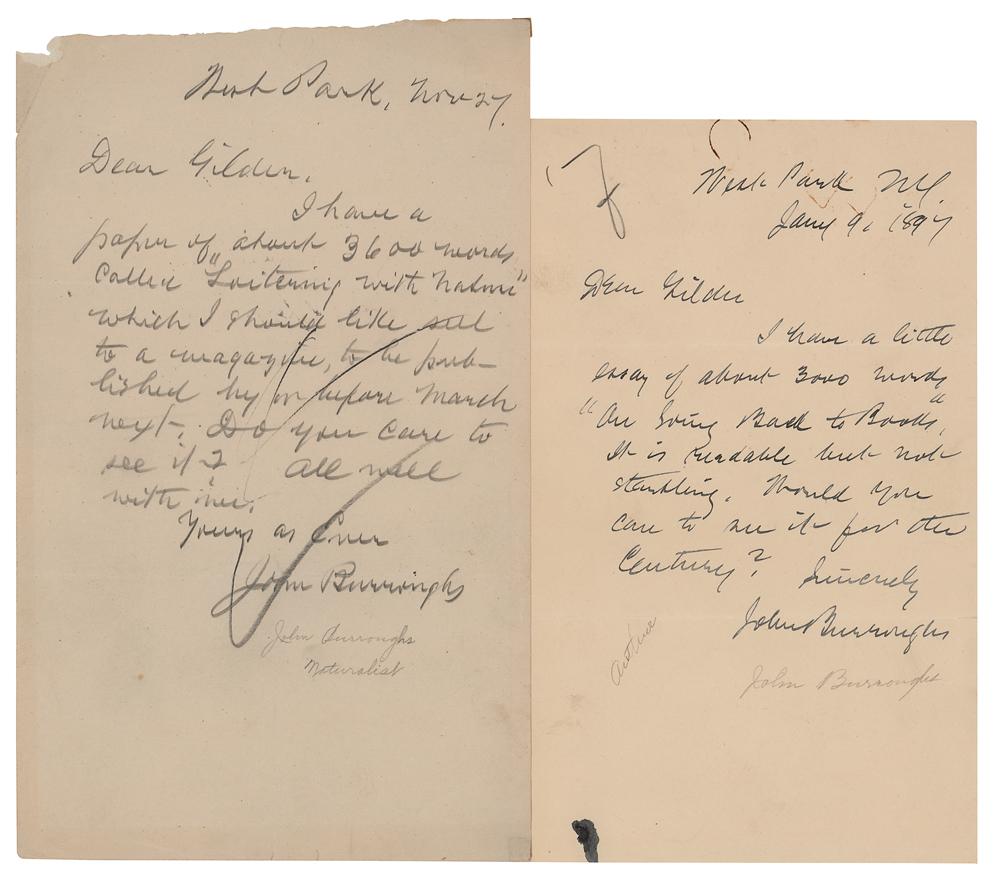 West Park, Nov 27.
Dear Gilder,
I have a
paper of about 3600 words
called "Loitering with Nature"
which I should like sell
to a magazine, to be pub-
lished by or before March
next. Do you care to
see it? All well
with me.
Yours as Ever
John Burroughs
John Burroughs
Naturalist
West Park NY.
Jany 9, 1897
Dear Gilder
I have a little
essay of about 3000 words
"On Going Back to Books",
It is readable but not
startling. Would you
care to see it for the
Century? Sincerely
John Burroughs
author
John Burroughs